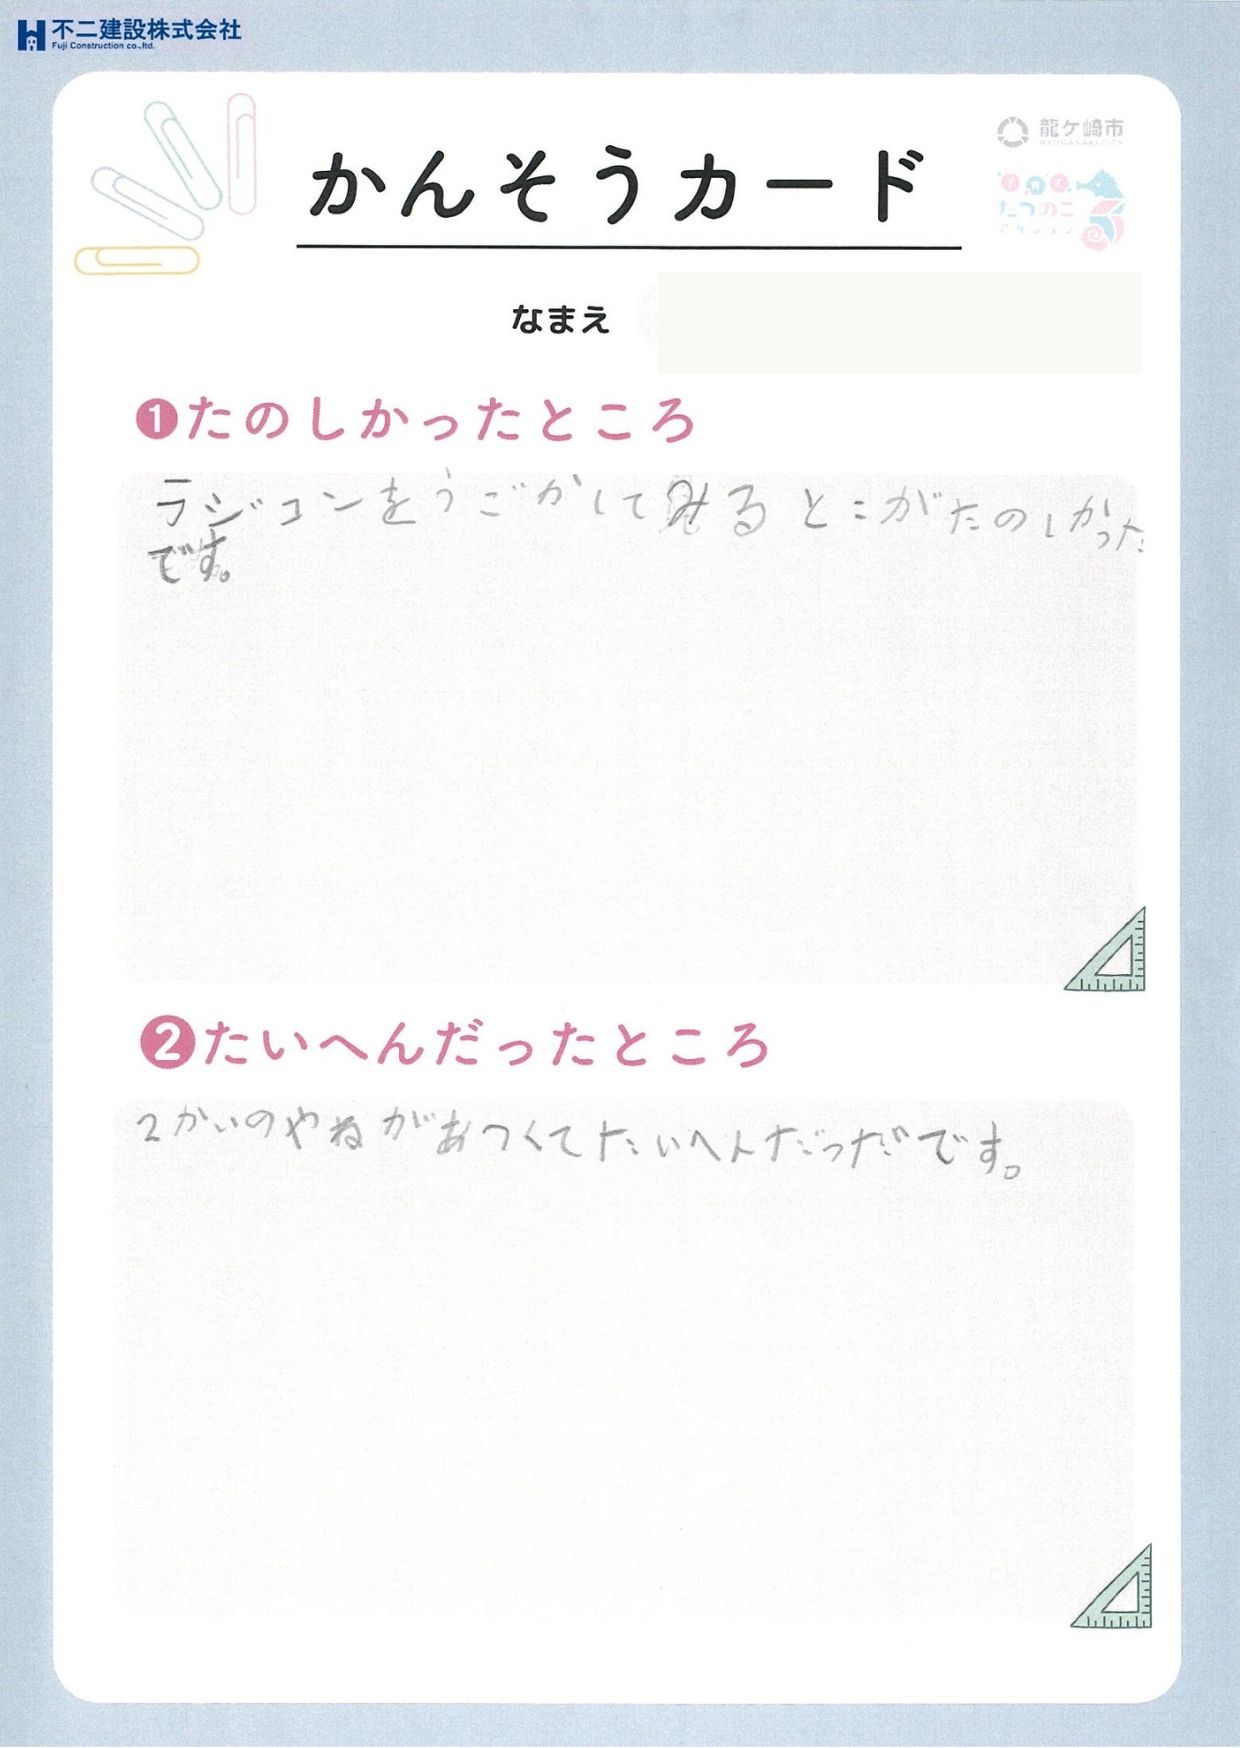 不二建設株式会社
Fuji Construction co.,ltd.
龍ケ崎市
RYUGASAKI CITY
かんそうカード
子育て
たつのこ
アクション
なまえ
❶たのしかったところ
ラジコンをうごかしてみるとこがたのしかった
です。
❷たいへんだったところ
2かいのやねがあつくてたいへんだっだです。